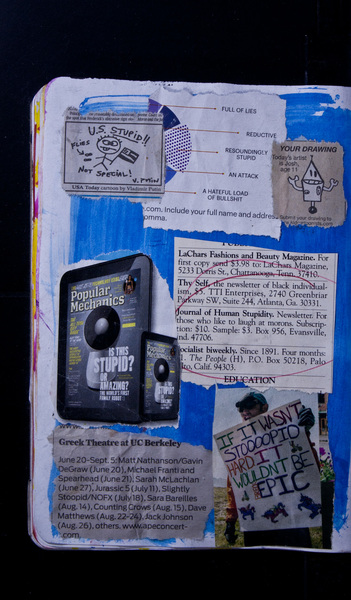 FULL OF LIES
REDUCTIVE
RESOUNDINGLY
STUPID
AN ATTACK
A HATEFUL LOAD
OF BULLSHIT
.com. Include your full name and address
omma.
U.S. STUPID!!
FLIES
NOT SPECIAL!
V. PUTIN
USA Today cartoon by Vladimir Putin
YOUR DRAWING
Today's artist
is Josh,
age 11
Submit your drawing to
LaChars Fashions and Beauty Magazine. For
first copy send $3.98 to: LaChars Magazine,
5233 Dorris St., Chattanooga, Tenn. 37410.
Thy Self, the newsletter of black individual-
ism, $5. TTI Enterprises, 2740 Greenbriar
Parkway SW, Suite 244, Atlanta, Ga. 30331.
Journal of Human Stupidity. Newsletter. For
those who like to laugh at morons. Subscrip-
tion: $10. Sample: $3. Box 956, Evansville,
nd. 47706.
ocialist biweekly. Since 1891. Four months:
1. The People (H), P.O. Box 50218, Palo
to, Calif. 94303.
EDUCATION
Popular
Mechanics
IS THIS
STUPID?
OR
AMAZING?
THE WORLD'S FIRST
FAMILY ROBOT
Greek Theatre at UC Berkeley
June 20-Sept. 5: Matt Nathanson/Gavin
DeGraw (June 20), Michael Franti and
Spearhead (June 21), Sarah McLachlan
(June 27), Jurassic 5 (July 11), Slightly
Stoopid/NOFX (July 18), Sara Bareilles
(Aug. 14), Counting Crows (Aug. 15), Dave
Matthews (Aug. 22-24), Jack Johnson
(Aug. 26), others. www.apeconcert-
.com.
IF IT WASN'T
STOOOOPID
HARD IT
WOULDN'T
BE
EPIC